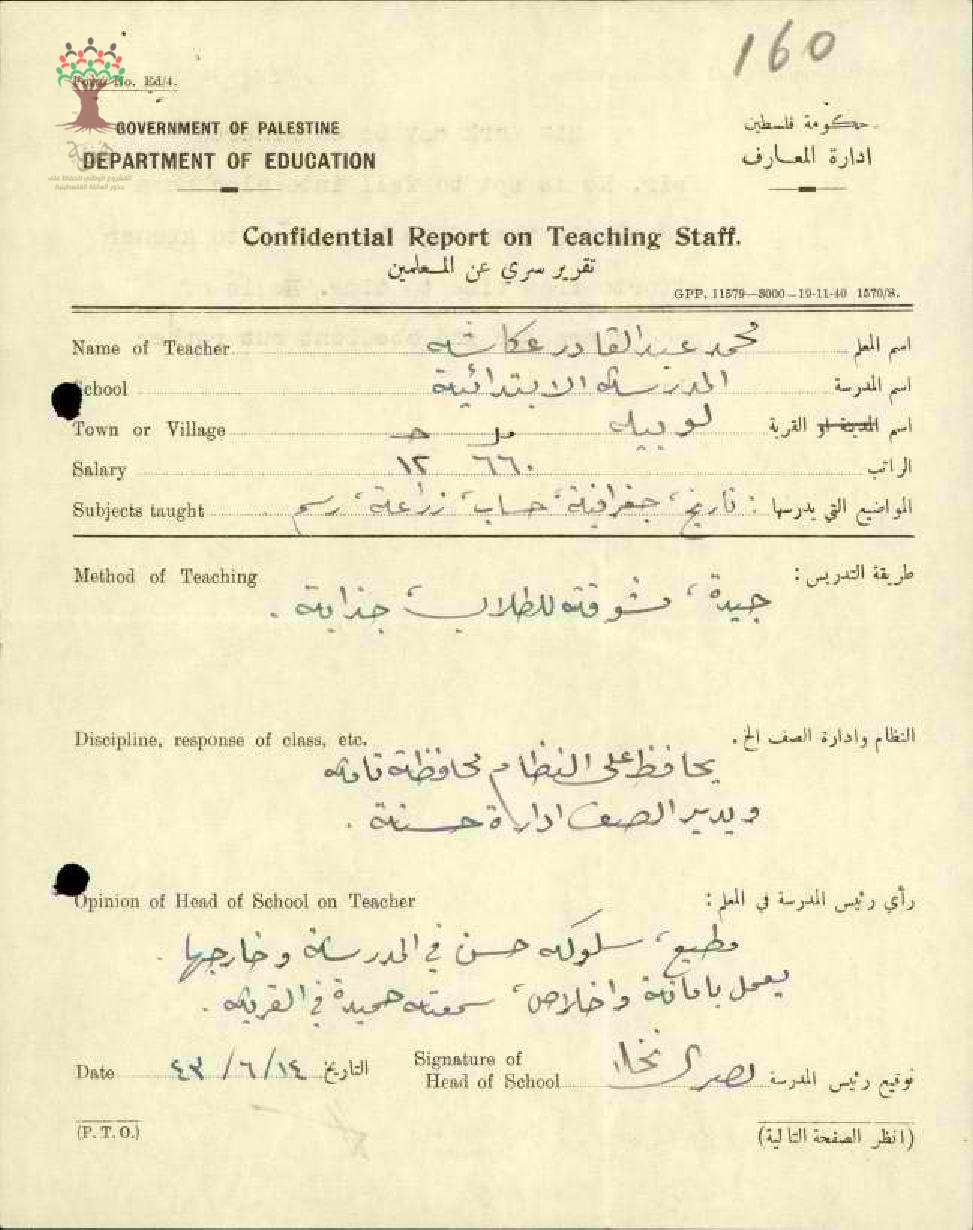 160
Form No. Ed/4.
GOVERNMENT OF PALESTINE
حكومة فلسطين
DEPARTMENT OF EDUCATION
ادارة المعارف
المشروع الوطني للحفاظ على
جذور العائلة الفلسطينية
Confidential Report on Teaching Staff.
تقرير سري عن المعلمين
GPP. 11579—3000—19-11-40 1570/S.
Name of Teacher محمد عبد القادر عكاشه اسم المعلم
School المدرسة الابتدائية اسم المدرسة
Town or Village لوبيه اسم المدينة او القرية
مل جـ
Salary ٦٦٠ ١٢ الراتب
Subjects taught تاريخ، جغرافية، حساب، زراعة، رسم المواضيع التي يدرسها :
Method of Teaching طريقة التدريس :
جيدة، مشوقة للطلاب، جذابة .
Discipline, response of class, etc. النظام وادارة الصف الخ .
يحافظ على النظام محافظة تامة
ويدير الصف ادارة حسنة .
Opinion of Head of School on Teacher رأي رئيس المدرسة في المعلم :
مطيع، سلوكه حسن في المدرسة وخارجها .
يعمل بامانة واخلاص، سمعته حميدة في القرية .
Date ٤٣/٦/١٤ التاريخ Signature of Head of School توقيع رئيس المدرسة
(P. T. O.) (انظر الصفحة التالية)